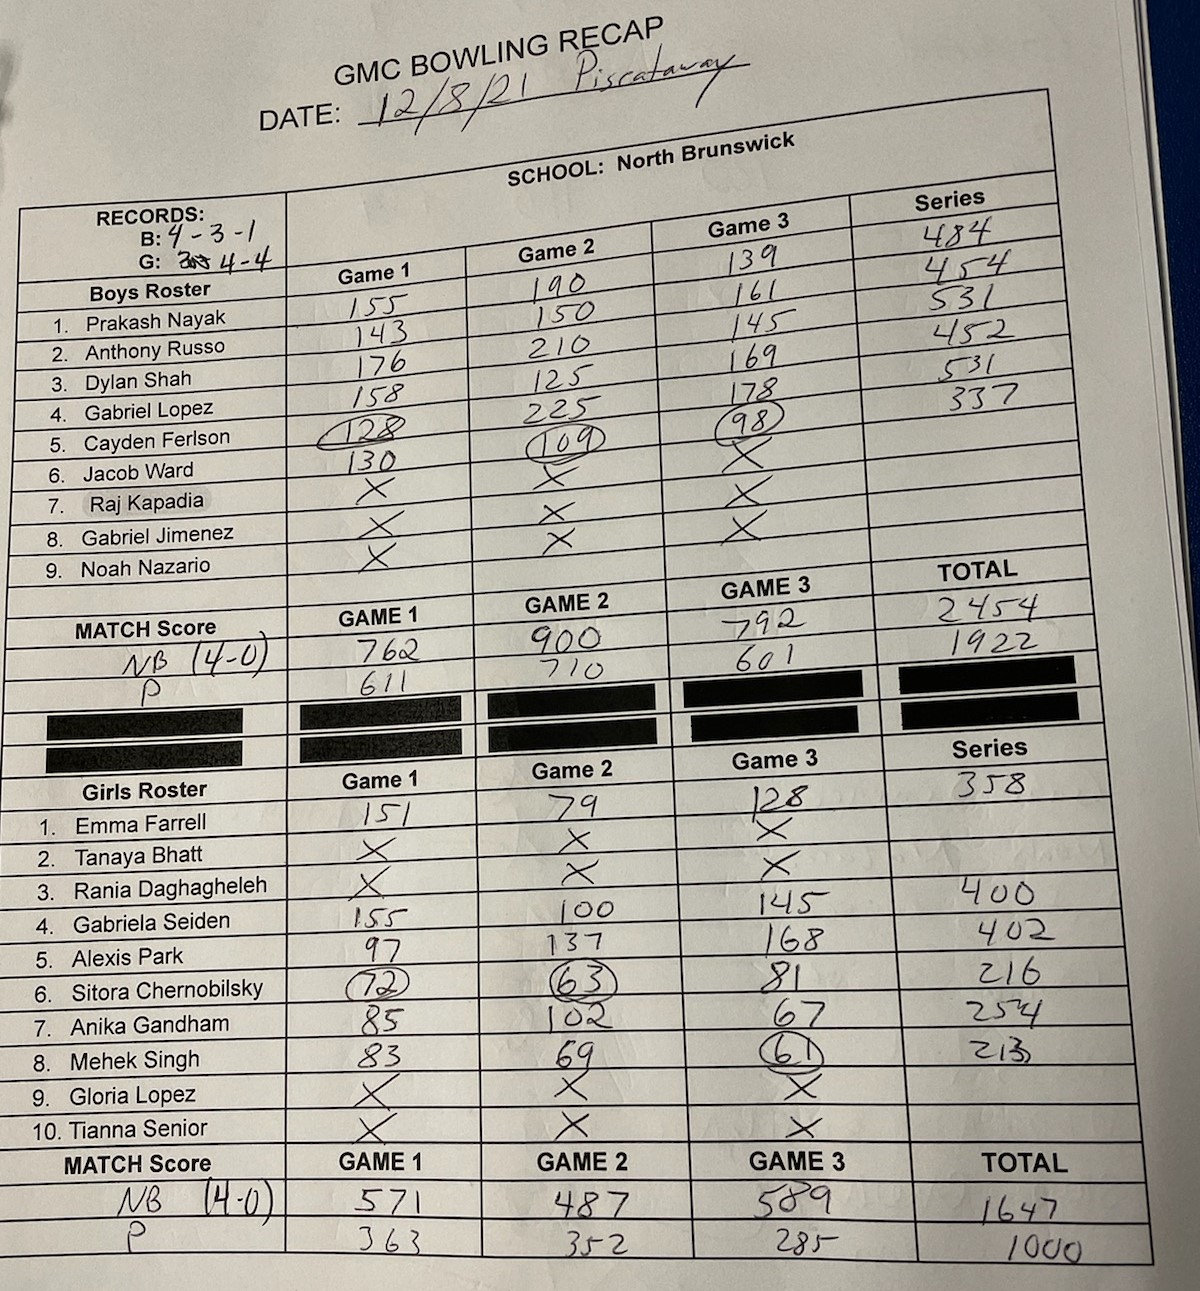 GMC BOWLING RECAP
DATE: 12/8/21 Piscataway
SCHOOL: North Brunswick
RECORDS:
B: 4-3-1
G: 4-4
Boys Roster Game 1 Game 2 Game 3 Series
1. Prakash Nayak 155 190 139 484
2. Anthony Russo 143 150 161 454
3. Dylan Shah 176 210 145 531
4. Gabriel Lopez 158 125 169 452
5. Cayden Ferlson 128 225 178 531
6. Jacob Ward 130 109 98 337
7. Raj Kapadia X X X
8. Gabriel Jimenez X X X
9. Noah Nazario X X X
MATCH Score GAME 1 GAME 2 GAME 3 TOTAL
NB (4-0) 762 900 792 2454
P 611 710 601 1922
Girls Roster Game 1 Game 2 Game 3 Series
1. Emma Farrell 151 79 128 358
2. Tanaya Bhatt X X X
3. Rania Daghagheleh X X X
4. Gabriela Seiden 155 100 145 400
5. Alexis Park 97 137 168 402
6. Sitora Chernobilsky 72 63 81 216
7. Anika Gandham 85 102 67 254
8. Mehek Singh 83 69 61 213
9. Gloria Lopez X X X
10. Tianna Senior X X X
MATCH Score GAME 1 GAME 2 GAME 3 TOTAL
NB (4-0) 571 487 589 1647
P 363 352 285 1000